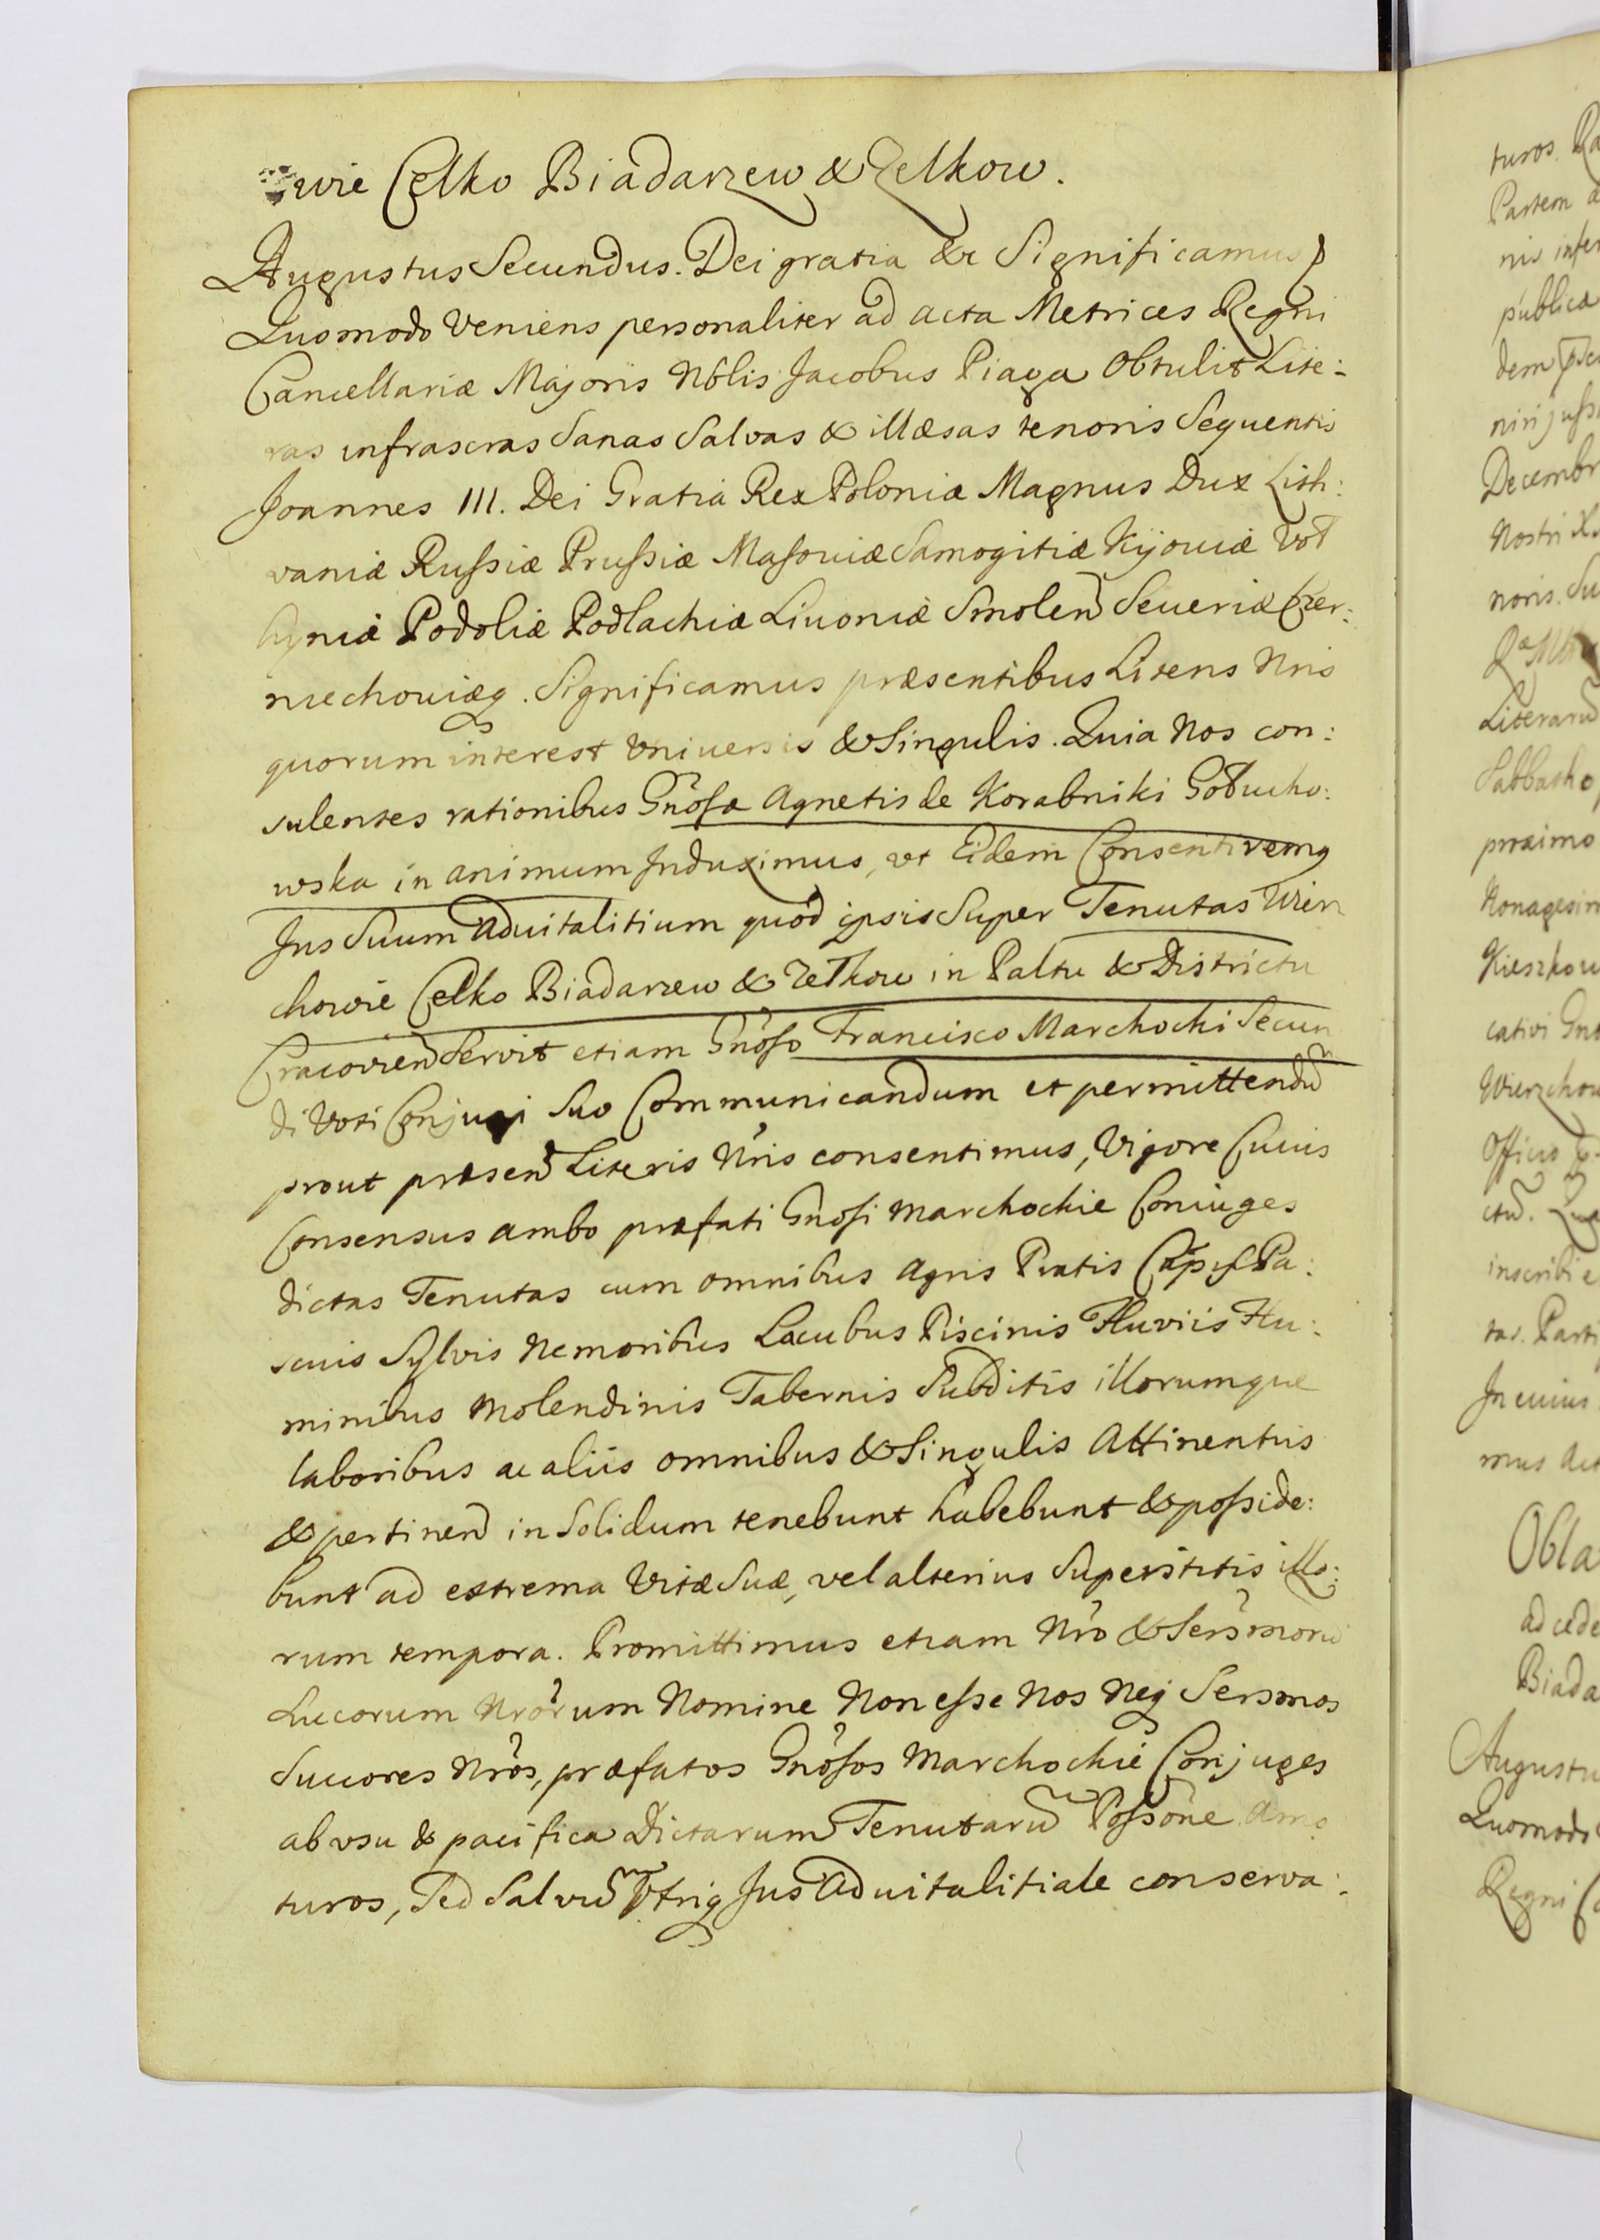 wie Celko Biadarzew & Zelkow.
Augustus Secundus. Dei gratia &c Significamus
Quomodo Veniens personaliter ad acta Metrices Regni
Cancellariæ Majoris Nblis Jacobus Piaga Obtulit Lite:
ras infrascras Sanas Salvas & illæsas tenoris Sequentis
Joannes III. Dei Gratia Rex Poloniæ Magnus Dux Lith:
vaniæ Russiæ Prussiæ Masouiæ Samogitiæ Kijouiæ Vol
hyniæ Podoliæ Podlachiæ Liuoniæ Smolen Seueriæ Czer:
niechouiæq. Significamus præsentibus Literis Nris
quorum interest Vniuersis & Singulis. Quia Nos con:
sulentes rationibus Gnosæ Agnetis de Korabniki Gołucho:
wska in animum Induximus, vt Eidem Consentiremg
Jus Suum Aduitalitium quod ipsis Super Tenutas Wierz
chowie Celko Biadarzew & Zelkow in Paltu & Districtu
Cracovien Servit etiam Gnoso Francisco Marchocki Secun
di Voti Conjugi Suo Communicandum et permittendu
prout præsen Literis Nris consentimus, Vigore Cuius
Consensus ambo præfati Gnosi Marchockie Coniuges
dictas Tenutas cum omnibus Agris Pratis Campis Pa:
scuis Sylvis Nemoribus Lacubus Piscinis Fluviis Flu:
minibus Molendinis Tabernis Subditis illorumque
laboribus ac aliis omnibus & Singulis Attinentiis
& pertinen in Solidum tenebunt habebunt & posside:
bunt ad extrema Vitæ Suæ, vel alterius Superstitis illo:
rum tempora. Promittimus etiam Nro & Sersmoru
Succorum Nrorum Nomine Non esse Nos Neq Sersmos
Succores Nros, præfatos Gnosos Marchockie Conjuges
ab vsu & pacifica Dictarum Tenutaru Possone Amo
turos, Sed Salvu Vtriq Jus Aduitalitiale conserva:
turos.
Partem
publica
Decembr
Nostri
noris.
Literaru
Sabbatho
proximo
Nonagesim
Kieszkow
cativi
Wierzchow
Officio
inscribi
tar. Parti
In cuius
mus
Obla
ad cede
Biada
Augustu
Quomodo
Regni